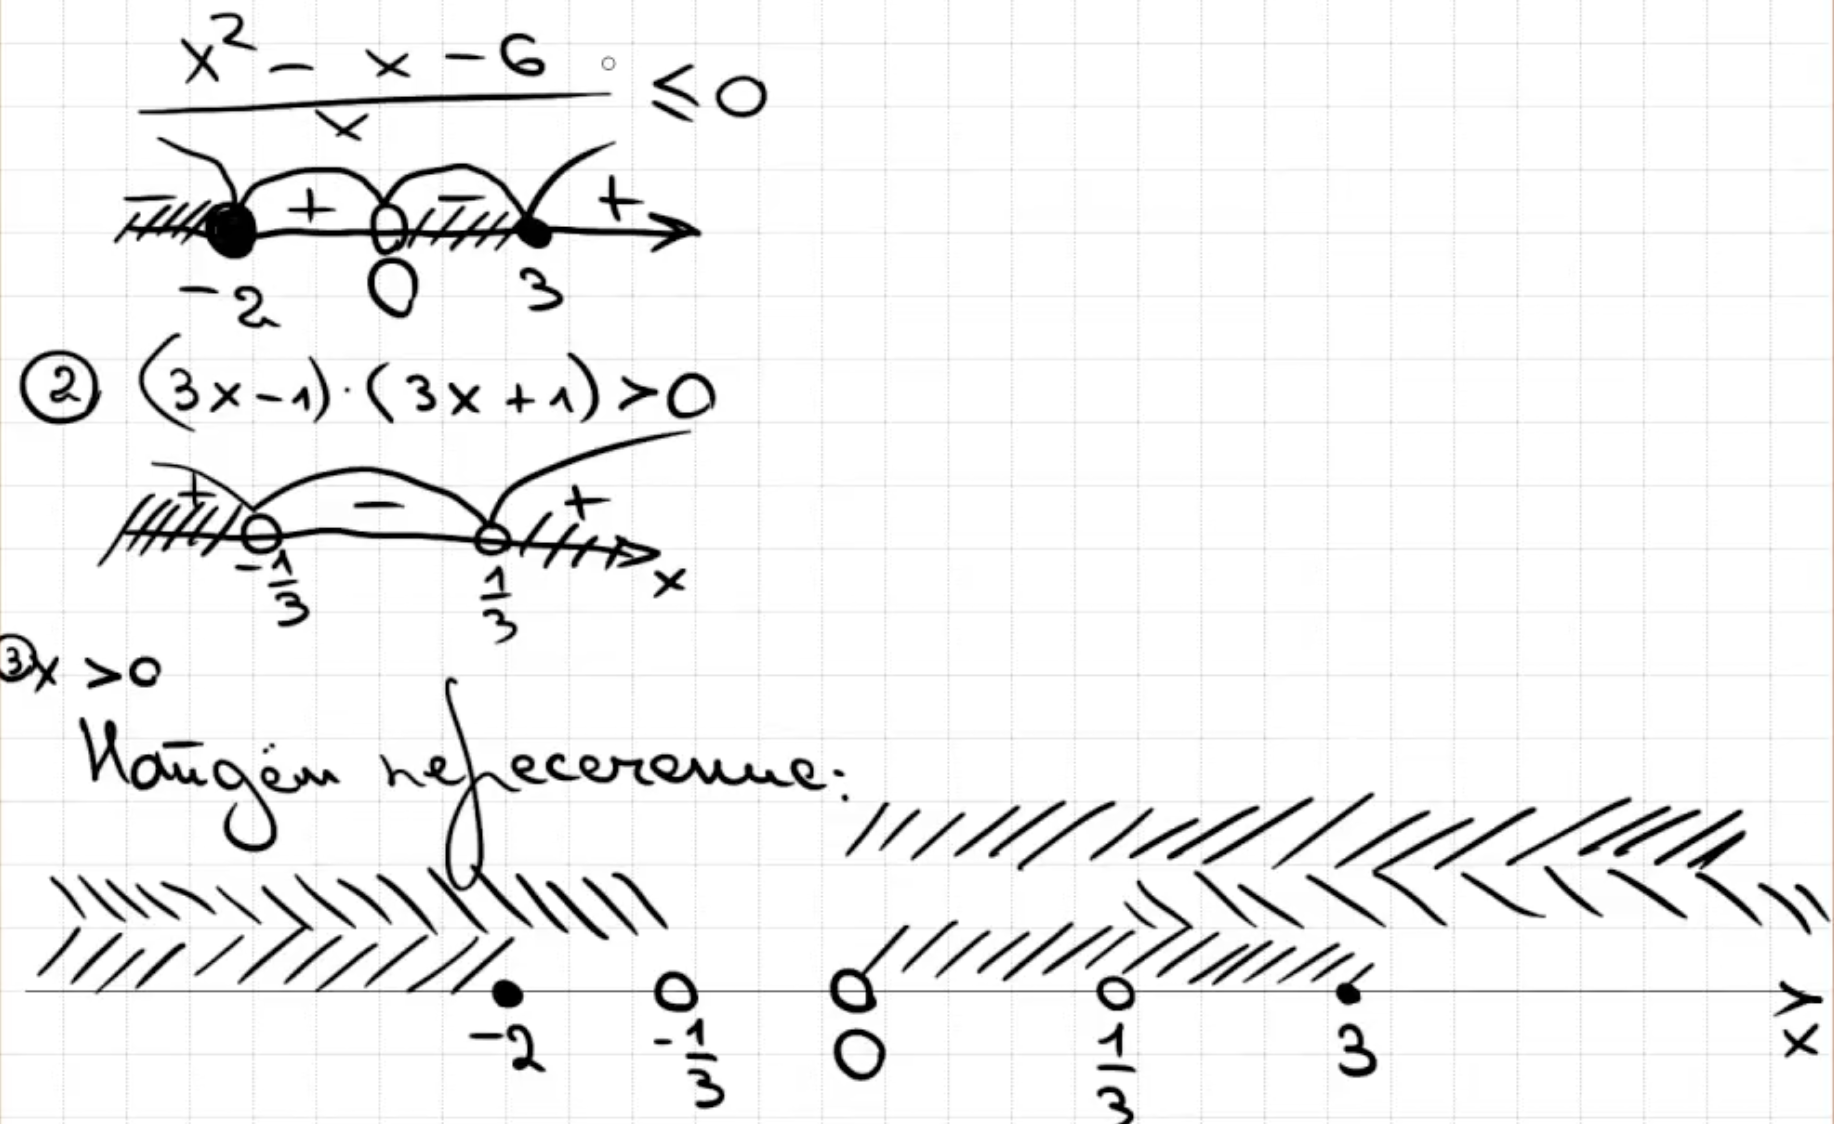 x² - x - 6
≤ 0
x
- + - +
-2 0 3
② (3x-1)·(3x+1)>0
+ - +
-1/3 1/3 x
③x >0
Найдём пересечение:
-2 -1/3 0 1/3 3 x